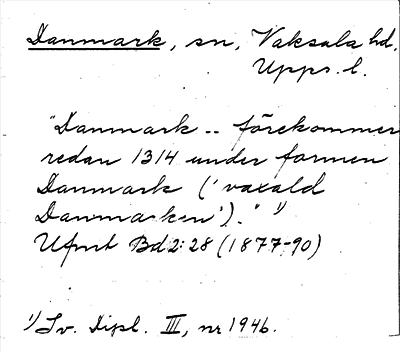 Danmark, sn, Vaksala hd.
Upps. l.
"Danmark -- förekommer
redan 1314 under formen
Danmark ('vaxald
Danmarken')." 1)
Ufmt Bd 2: 28 (1877-90)
1) Sv. Dipl. III, nr 1946.